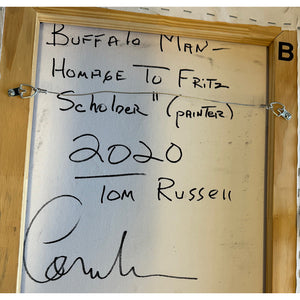 Buffalo Man —
Homage To Fritz
Scholder" (painter)
B
2020
Tom Russell